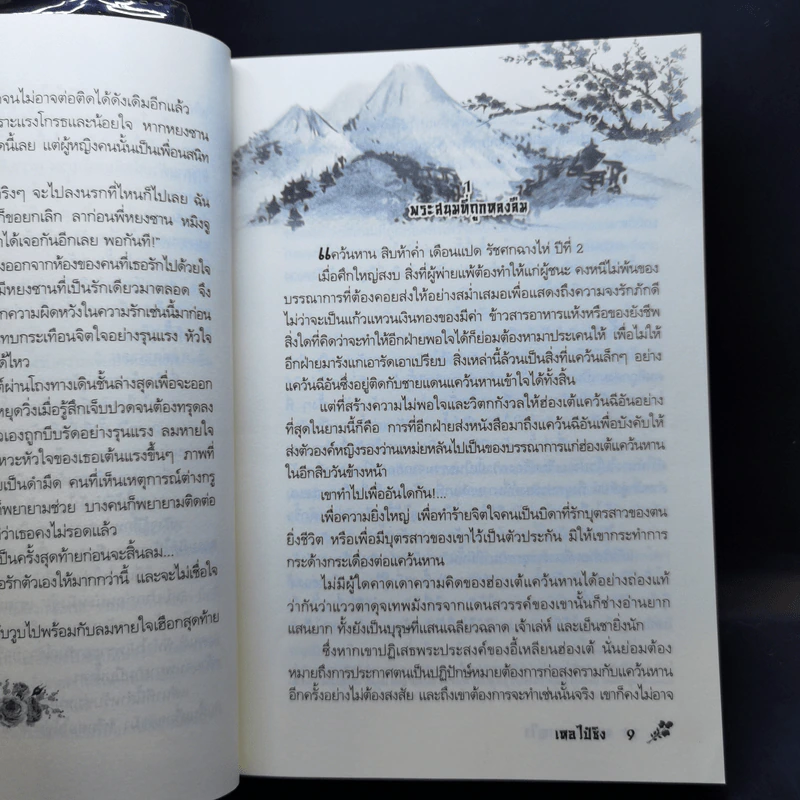 จนไม่อาจต่อติดได้ดังเดิมอีกแล้ว
ราะแรงโกรธและน้อยใจ หากหยงซาน
ดนี้เลย แต่ผู้หญิงคนนั้นเป็นเพื่อนสนิท
ริงๆ จะไปลงนรกที่ไหนก็ไปเลย ฉัน
ก็ขอยกเลิก ลาก่อนพี่หยงซาน หมิงจู
าได้เจอกันอีกเลย พอกันที!"
งออกจากห้องของคนที่เธอรักไปด้วยใจ
มีหยงซานที่เป็นรักเดียวมาตลอด จึง
กความผิดหวังในความรักเช่นนี้มาก่อน
ทบกระเทือนจิตใจอย่างรุนแรง หัวใจ
ได้ไหว
ต์ผ่านโถงทางเดินชั้นล่างสุดเพื่อจะออก
หยุดวิ่งเมื่อรู้สึกเจ็บปวดจนต้องทรุดลง
ัวเองถูกบีบรัดอย่างรุนแรง ลมหายใจ
หวะหัวใจของเธอเต้นแรงขึ้นๆ ภาพที่
ยเป็นดำมืด คนที่เห็นเหตุการณ์ต่างกรู
ก็พยายามช่วย บางคนก็พยายามติดต่อ
ว่าเธอคงไม่รอดแล้ว
ป็นครั้งสุดท้ายก่อนจะสิ้นลม...
อรักตัวเองให้มากกว่านี้ และจะไม่เชื่อใจ
ับวูบไปพร้อมกับลมหายใจเฮือกสุดท้าย
1
พระสนมที่ถูกหลงลืม
แคว้นหาน สิบห้าค่ำ เดือนแปด รัชศกฉางไห่ ปีที่ 2
เมื่อศึกใหญ่สงบ สิ่งที่ผู้พ่ายแพ้ต้องทำให้แก่ผู้ชนะ คงหนีไม่พ้นของ
บรรณาการที่ต้องคอยส่งให้อย่างสม่ำเสมอเพื่อแสดงถึงความจงรักภักดี
ไม่ว่าจะเป็นแก้วแหวนเงินทองของมีค่า ข้าวสารอาหารแห้งหรือของยังชีพ
สิ่งใดที่คิดว่าจะทำให้อีกฝ่ายพอใจได้ก็ย่อมต้องหามาประเคนให้ เพื่อไม่ให้
อีกฝ่ายมารังแกเอารัดเอาเปรียบ สิ่งเหล่านี้ล้วนเป็นสิ่งที่แคว้นเล็กๆ อย่าง
แคว้นฉีอันซึ่งอยู่ติดกับชายแดนแคว้นหานเข้าใจได้ทั้งสิ้น
แต่ที่สร้างความไม่พอใจและวิตกกังวลให้ฮ่องเต้แคว้นฉีอันอย่าง
ที่สุดในยามนี้ก็คือ การที่อีกฝ่ายส่งหนังสือมาถึงแคว้นฉีอันเพื่อบังคับให้
ส่งตัวองค์หญิงรองว่านเหม่ยหลันไปเป็นของบรรณาการแก่ฮ่องเต้แคว้นหาน
ในอีกสิบวันข้างหน้า
เขาทำไปเพื่ออันใดกัน!...
เพื่อความยิ่งใหญ่ เพื่อทำร้ายจิตใจคนเป็นบิดาที่รักบุตรสาวของตน
ยิ่งชีวิต หรือเพื่อมีบุตรสาวของเขาไว้เป็นตัวประกัน มิให้เขากระทำการ
กระด้างกระเดื่องต่อแคว้นหาน
ไม่มีผู้ใดคาดเดาความคิดของฮ่องเต้แคว้นหานได้อย่างถ่องแท้
ว่ากันว่าแววตาดุจเทพมังกรจากแดนสวรรค์ของเขานั้นก็ช่างอ่านยาก
แสนยาก ทั้งยังเป็นบุรุษที่แสนเฉลียวฉลาด เจ้าเล่ห์ และเย็นชายิ่งนัก
ซึ่งหากเขาปฏิเสธพระประสงค์ของอี้เหลียนฮ่องเต้ นั่นย่อมต้อง
หมายถึงการประกาศตนเป็นปฏิปักษ์หมายต้องการก่อสงครามกับแคว้นหาน
อีกครั้งอย่างไม่ต้องสงสัย และถึงเขาต้องการจะทำเช่นนั้นจริง เขาก็คงไม่อาจ
เหลไป่ชิง 9